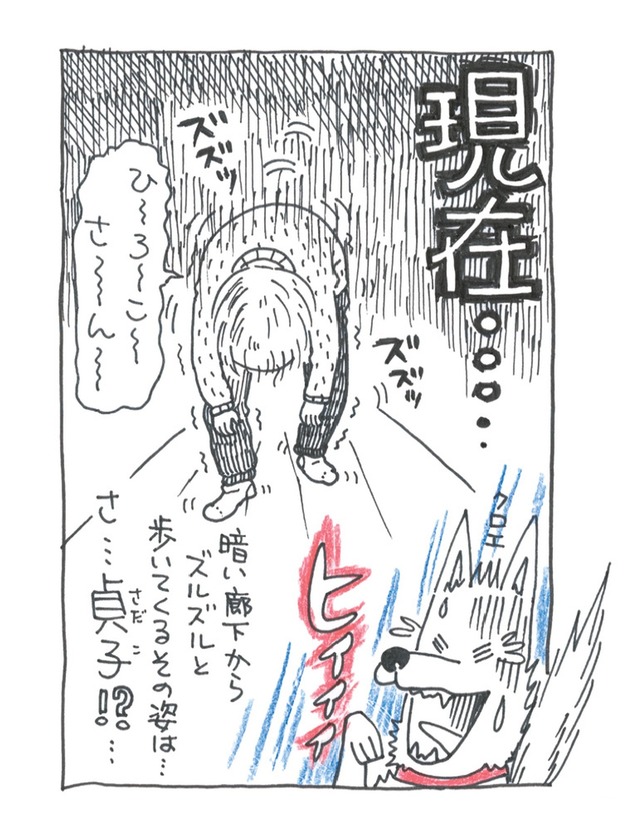 現在・・・・
ズズッ
ひ〜ろ〜こ〜
さ〜〜ん〜〜
ズズッ
クロエ
ヒィィィ
暗い廊下から
ズルズルと
歩いてくるその姿は…
さ…貞子!?…
さだこ